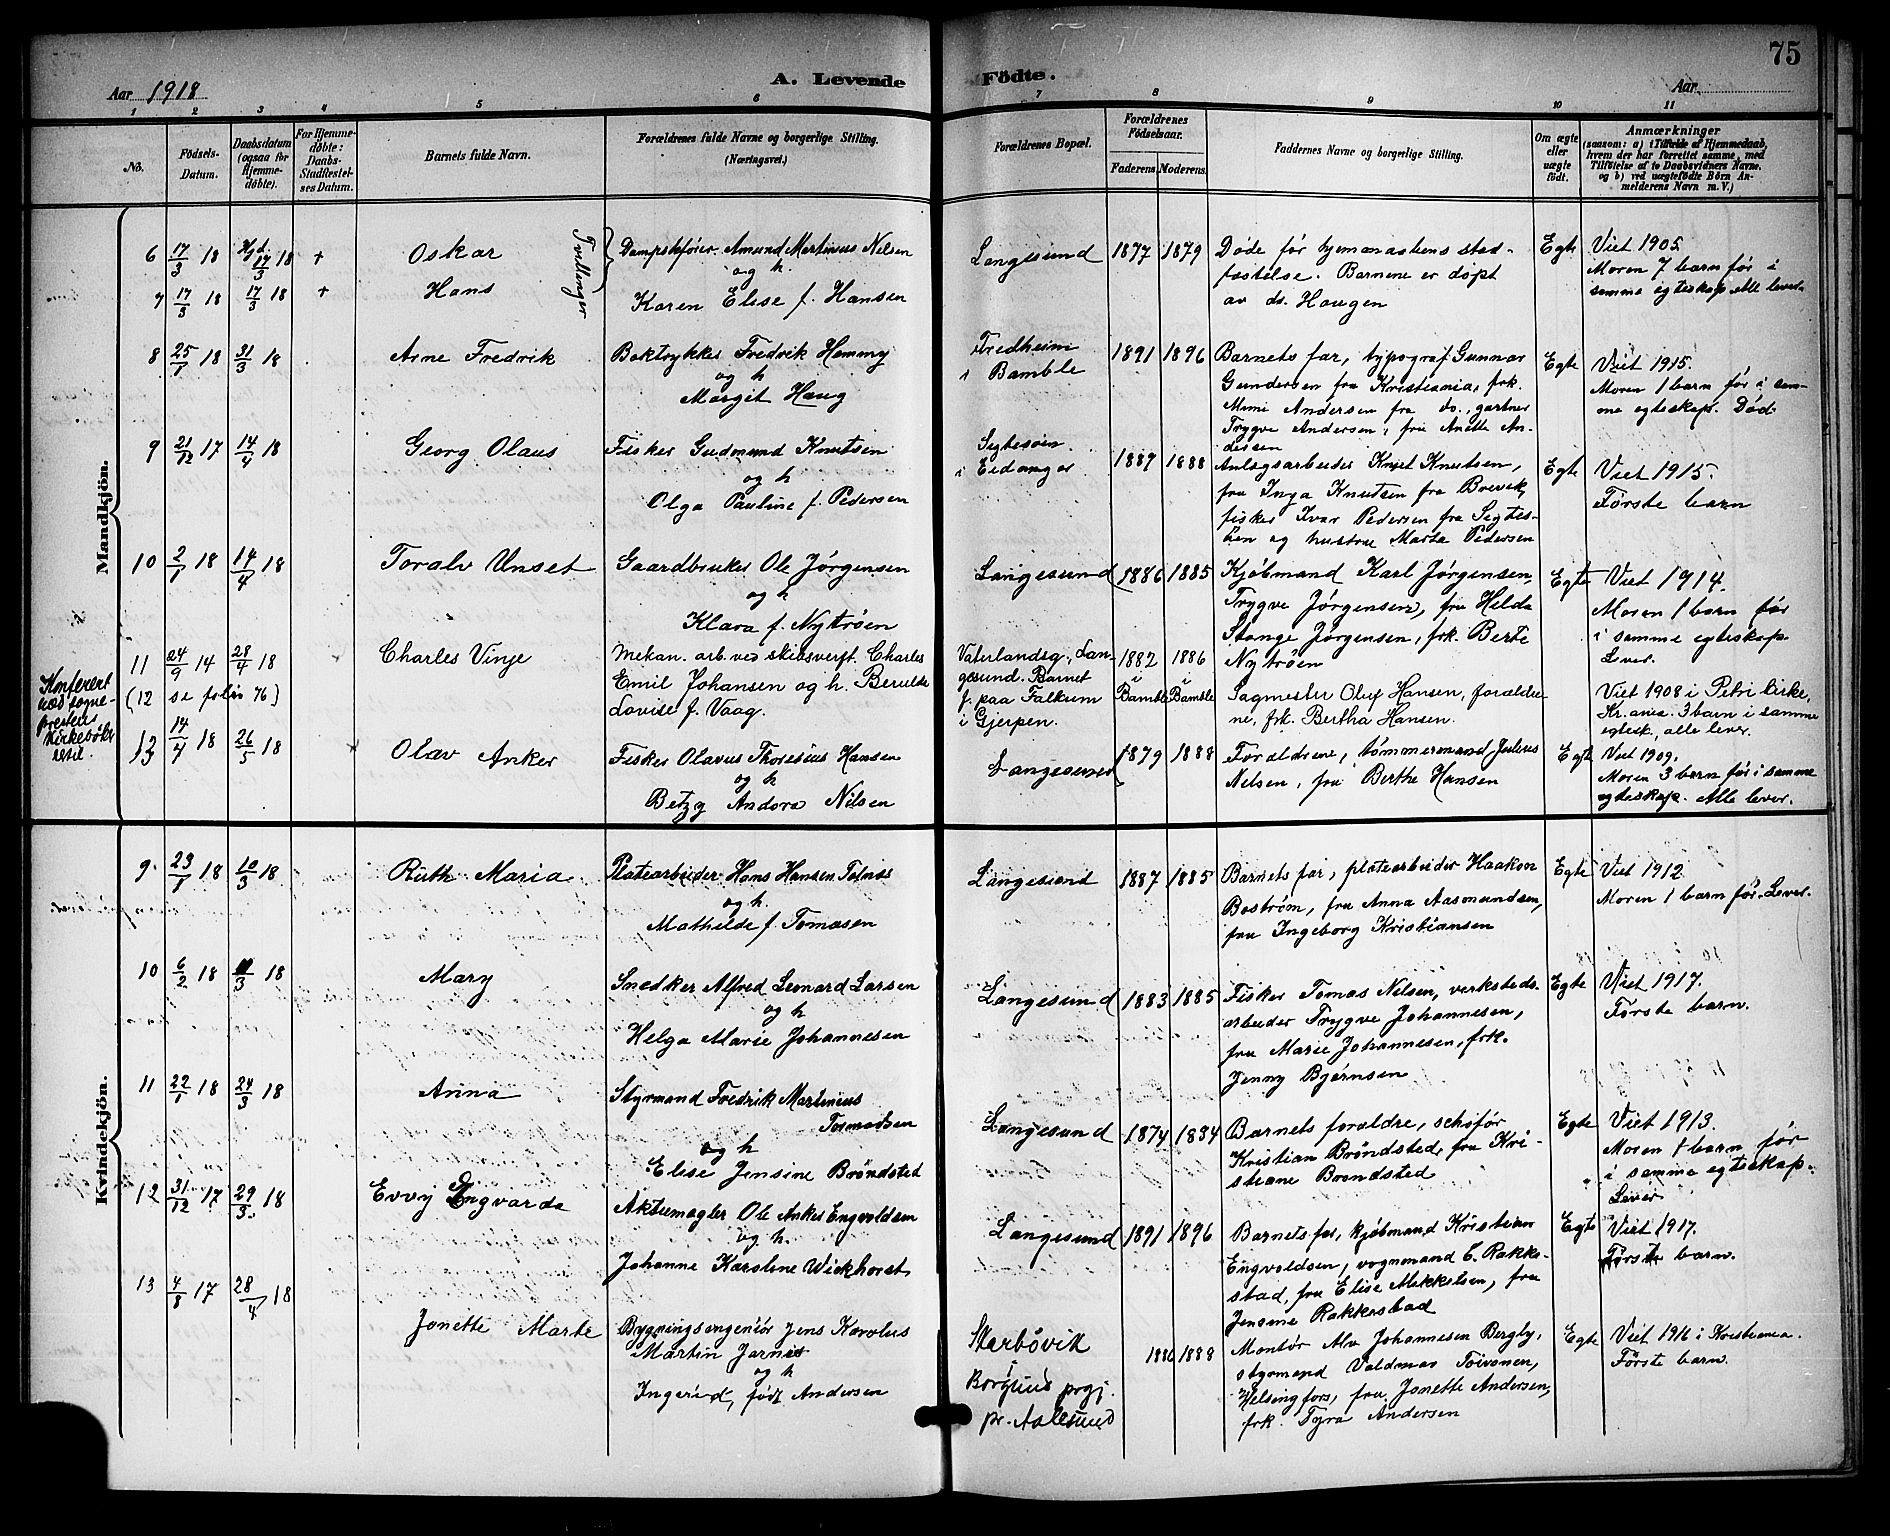 75
Aar 1918
A. Levende
Födte.
Aar
1 2 3 4 5 6 7 8 9 10 11
No.
Födsels-
Datum.
Daabsdatum
(ogsaa for
Hjemme-
døbte).
For Hjemme-
døbte:
Daabs-
Stadfæstel-
ses Datum.
Barnets fulde Navn.
Forældrenes fulde Navne og borgerlige Stilling.
(Næringsvei.)
Forældrenes Bopæl.
Forældrenes
Fødselsaar.
Faderens
Moderens
Faddernes Navne og borgerlige Stilling.
Om ægte
eller
uægte
født.
Anmærkninger
(saasom: a) i Tilfælde af Hjemmedaab,
hvem der har forrettet samme, med
Tilføielse af to Daabsvidners Navne.
og b) ved uægtefødte Børn An-
melderens Navn m. V.)
Mandkjön.
6 17/3 18 Hjd. 17/3 18 + Oskar
Tvillinger
Dampskfører Amund Martinius Nilsen
og h.
Langesund 1877 1879
Døde før hjemmedaabens stad-
fæstelse. Barnene er døpt
av dr. Haugen
Egte
Viet 1905.
Moren 7 barn før i
samme egteskap. Alle lever.
7 17/3 18 17/3 18 + Hans
Karen Elise f. Hansen
8 25/1 18 31/3 18 Arne Fredrik
Boktrykker Fredrik Hemmy
og h
Margit Haug
Fredheim
i Bamble
1891 1896
Barnets far, typograf Gunnar
Gundersen fra Kristiania, frk.
Mimi Andersen fra do., gartner
Trygve Andersen, fru Anette An-
dersen
Egte
Viet 1915.
Moren 1 barn før i sam-
me egteskap. Død.
9 21/12 17 14/4 18 Georg Olaus
Fisker Gudmund Knutsen
og h
Olga Pauline f. Pedersen
i Eidanger
1889 1888
Anlægsarbeider Knut Knutsen,
fru Inga Knutsen fra Brevik,
fisker Ivar Pedersen fra Sigtes-
øen og hustru Marta Pedersen
Egte
Viet 1915.
Første barn
10 2/1 18 14/4 18 Toralv Unset
Gaardbruker Ole Jørgensen
og h
Klara f. Nytrøen
Langesund 1886 1885
Kjøbmand Karl Jørgensen,
Trygve Jørgensen, fru Hilda
Stange Jørgensen, frk. Berte
Nytrøen
Egte
Viet 1914.
Moren 1 barn før
i samme egteskap.
Lever.
11 24/9 14 28/4 18 Charles Vinje
Mekan. arb. ved skibsverft. Charles
Emil Johansen og h. Berulda
Lovise f. Vaag.
Vaterlandsg., Lan-
gesund. Barnet
f. paa Falkum
i Gjerpen.
1882 i Bamble 1886 i Bamble
Sagmester Oluf Hansen, forældre-
ne, frk. Bertha Hansen.
Viet 1908 i Petri kirke,
Kr.ania. 3 barn i samme
egtesk., alle lever.
Konferert
med sogne-
prestens
kirkebok
(12 se folio 76)
13 14/4 18 26/5 18 Olav Anker
Fisker Olavus Thoresius Hansen
og h
Betzy Andora Nilsen
Langesund 1879 1888
Forældrene, tømmermand Julius
Nilsen, fru Berthe Hansen
Egte
Viet 1909.
Moren 3 barn før i samme
egteskap. Alle lever.
Kvindekjön.
9 23/1 18 10/3 18 Ruth Maria
Platearbeider Hans Hansen Tolnæs
og h.
Mathilde f. Tomasen
Langesund 1887 1885
Barnets far, platearbeider Haakon
Boström, fru Anna Aasmundsen,
fru Ingeborg Kristiansen
Egte
Viet 1912.
Moren 1 barn før. Lever.
10 6/2 18 /3 18 Mary
Snedker Alfred Leonard Larsen
og h
Helga Marie Johannesen
Langesund 1883 1885
Fisker Tomas Nilsen, verksteds-
arbeider Trygve Johannesen,
fru Marie Johannesen, frk.
Jenny Bjørnsen
Egte
Viet 1917.
Første barn.
11 22/1 18 24/3 18 Anna
Styrmand Fredrik Martinius
Tormodsen
og h
Elise Jensine Brøndsted
Langesund 1874 1884
Barnets forældre, schofør
Kristian Brøndsted, fru Kri-
stiane Brøndsted
Egte
Viet 1913.
Moren 1 barn før
i samme egteskap.
Lever
12 31/12 17 29/3 18 Evvy Engvarda
Aktiemægler Ole Anker Engvoldsen
og h.
Johanne Karoline Wickhorst
Langesund 1891 1896
Barnets far, kjøbmand Kristian
Engvoldsen, vognmand C. Rakke-
stad, fru Elise Mikkelsen, fru
Jensine Rakkestad
Egte
Viet 1917.
Første barn.
13 4/8 17 28/4 18 Jonette Marte
Bygningsingeniør Jens Karolus
Martin Jarnæs
og h
Ingerid, født Andersen
Skarbövik
Borgund prgj.
pr. Aalesund
1886 1888
Montör Alv Johannesen Bergby,
styrmand Valdmar Toivonen,
Helsingfors, fru Jonette Andersen,
frk. Tyra Andersen
Egte
Viet 1916 i Kristiania.
Første barn.